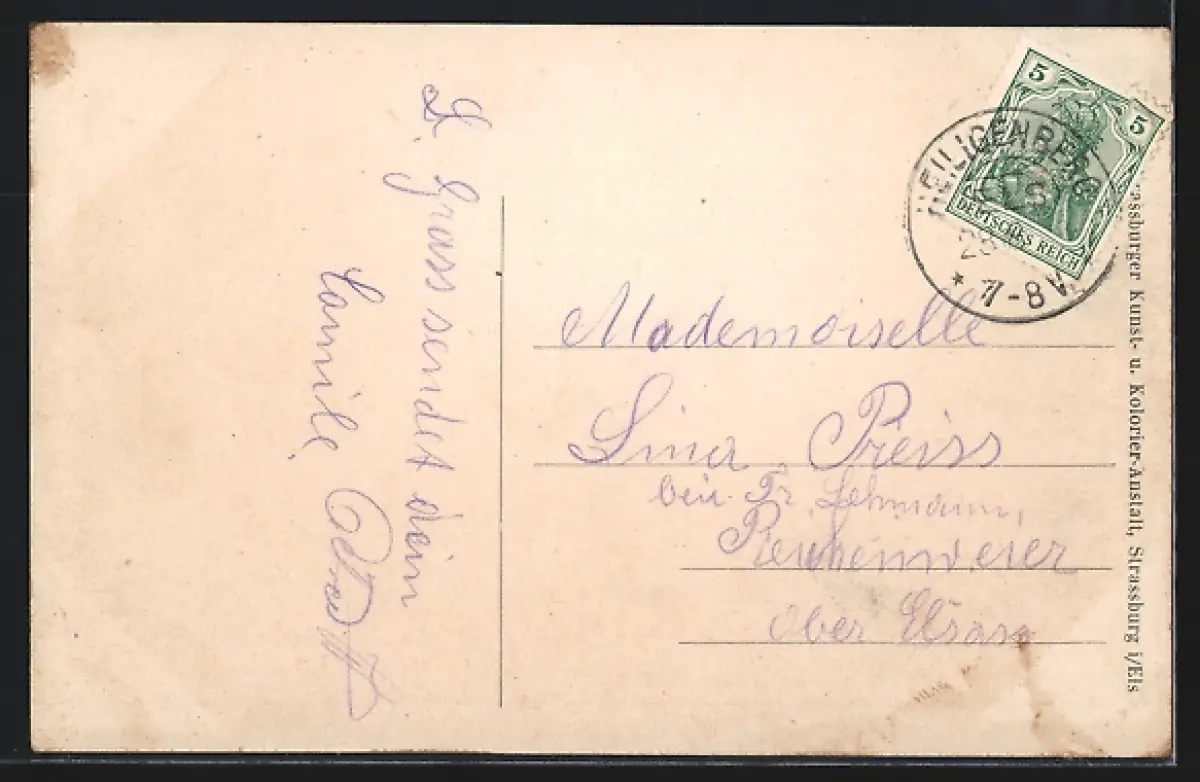 L. Gruss sendet dein
Camile
Mademoiselle
Lina Preiss
bei Fr. Lehmann,
Ober Elsass
5 5
DEUTSCHES REICH
HEILIGENBERG
ELS
7-8 V.
rassburger Kunst- u. Kolorier-Anstalt, Strassburg i/Els